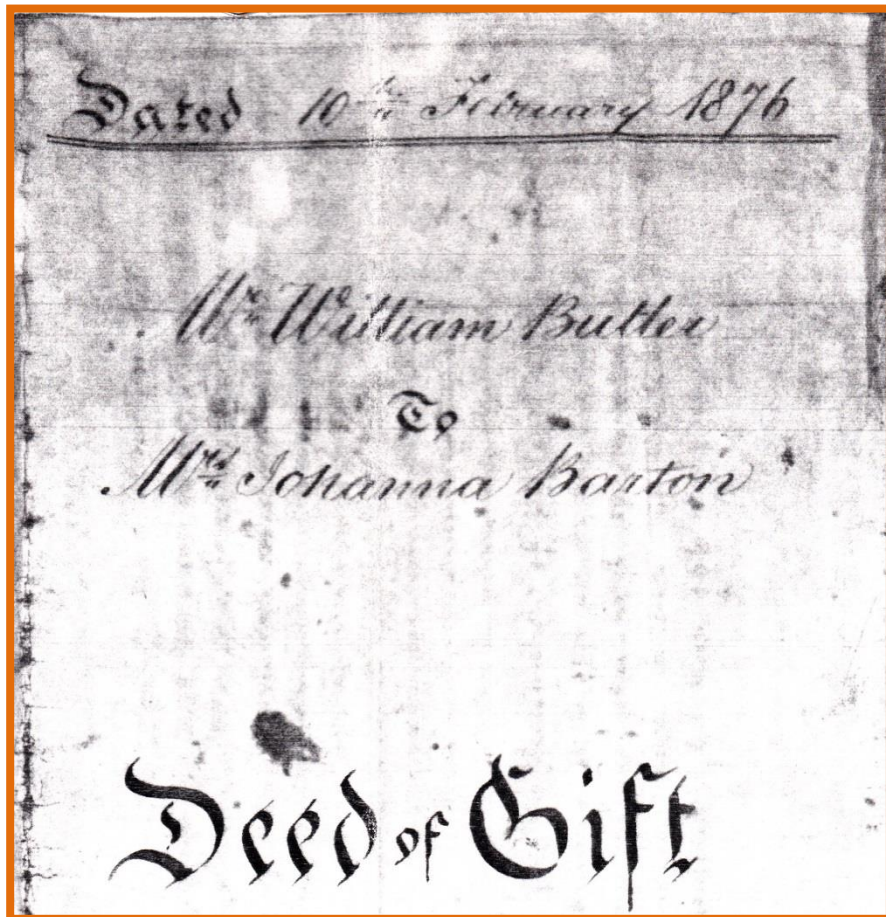 Dated 10th February 1876
Mr William Butler
To
Mrs Johanna Barton
Deed of Gift